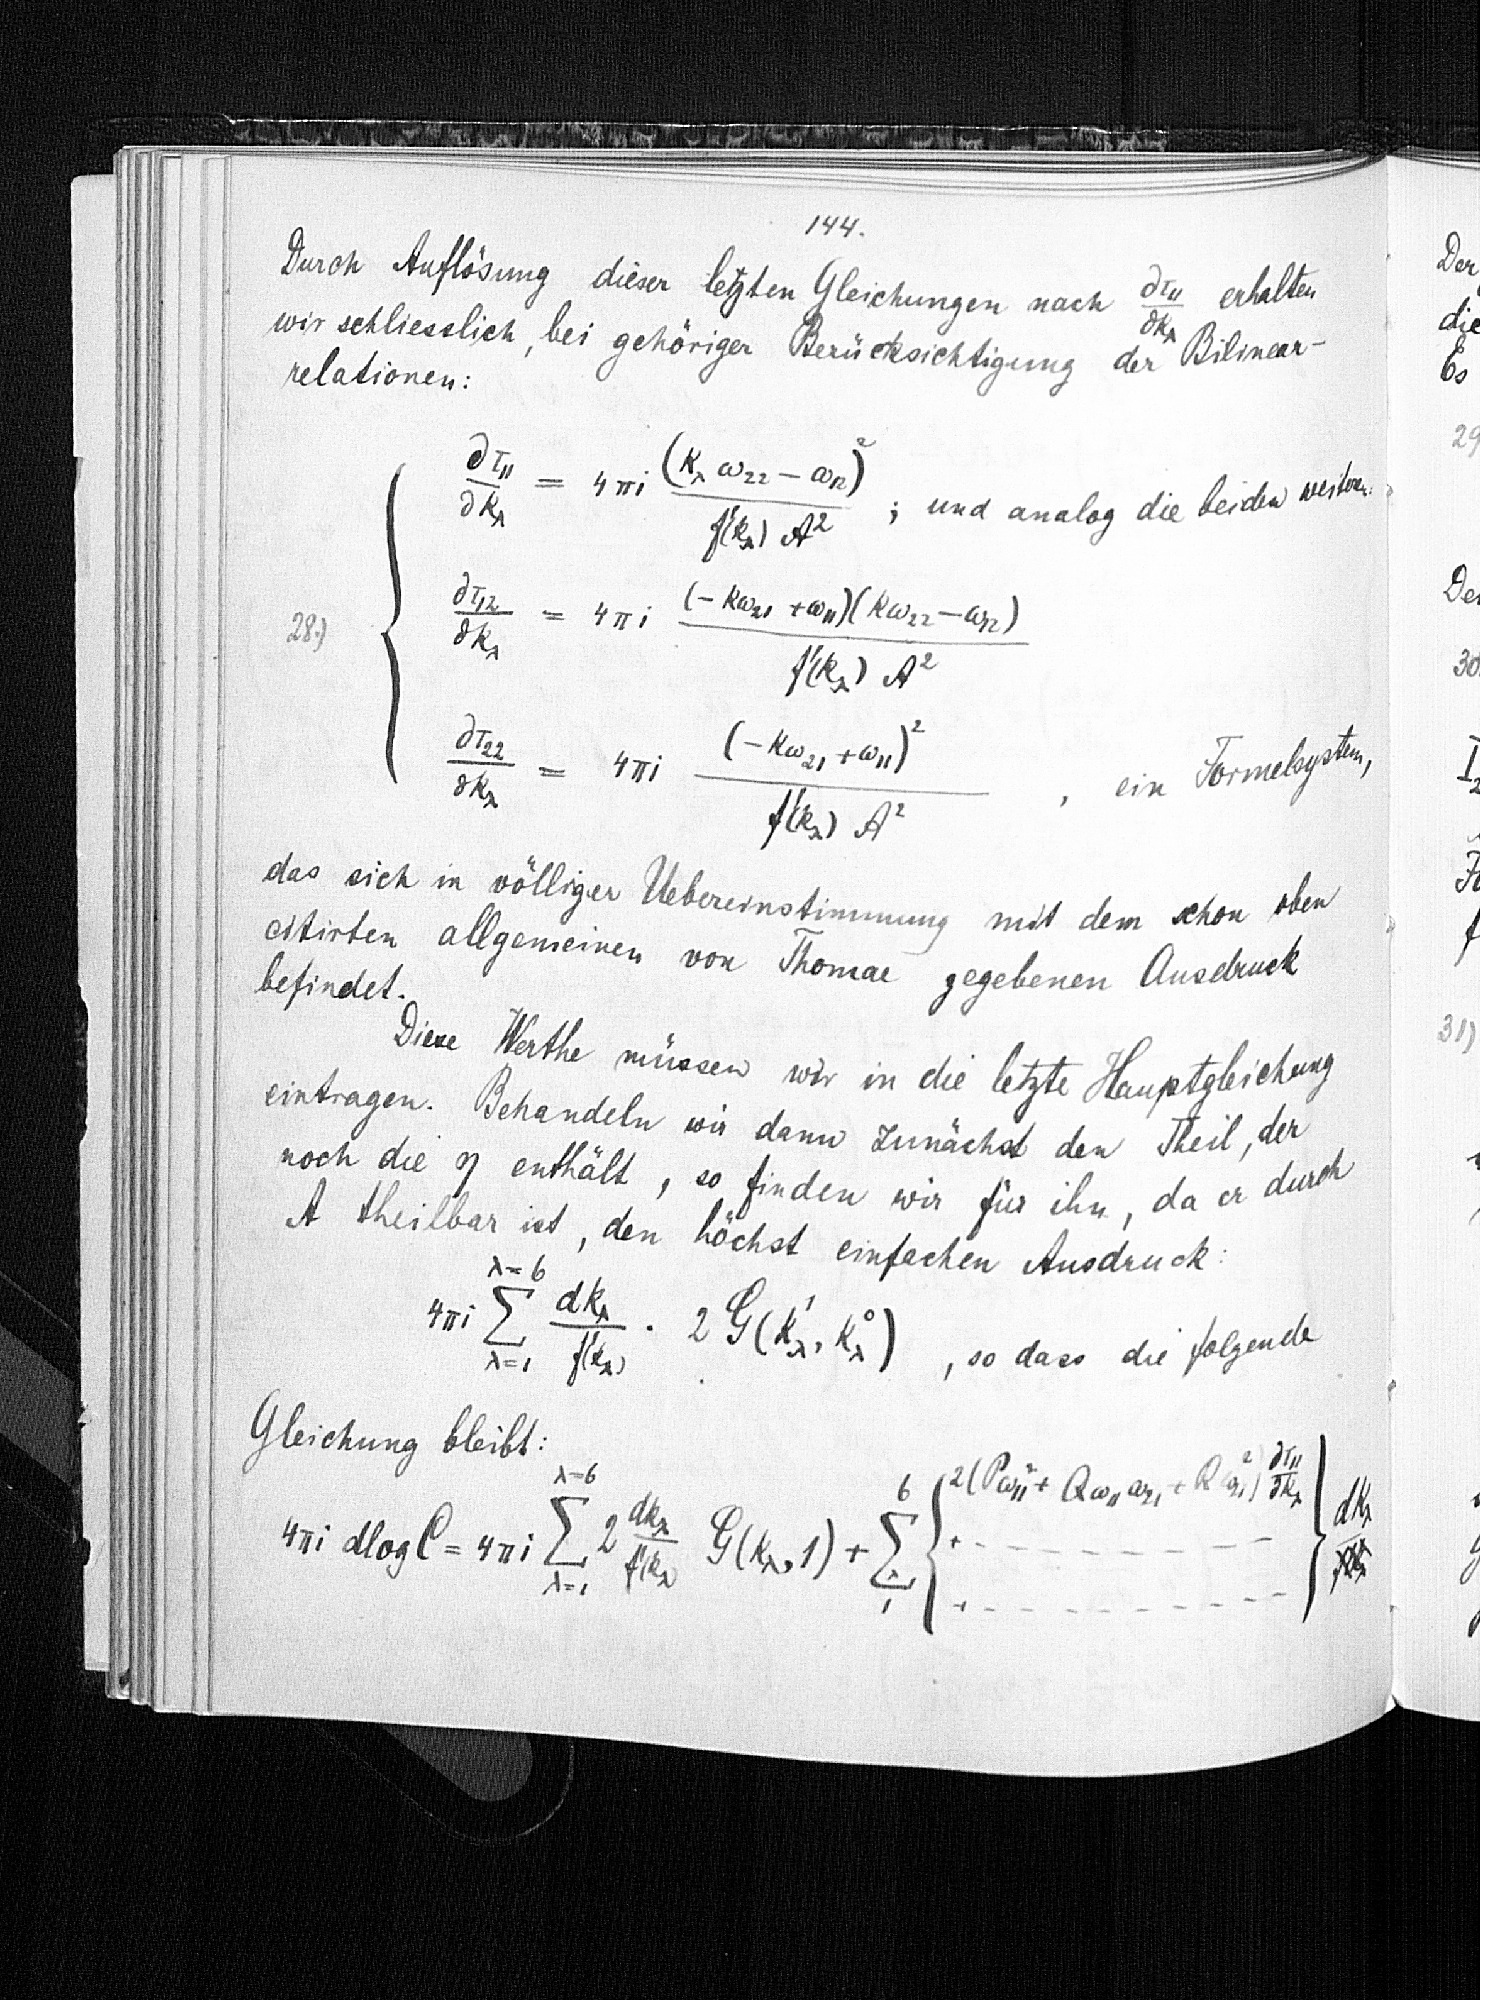 144.
Durch Auflösung dieser letzten Gleichungen nach ∂τ₁₁/∂k_λ erhalten
wir schliesslich, bei gehöriger Berücksichtigung der Bilinear-
relationen:
∂τ₁₁/∂k_λ = 4πi (k_λ ω₂₂ − ω₁₂)² / f'(k_λ) A² ; und analog die beiden weitern:
28.) ∂τ₁₂/∂k_λ = 4πi (−kω₂₁ + ω₁₁)(kω₂₂ − ω₁₂) / f'(k_λ) A²
∂τ₂₂/∂k_λ = 4πi (−kω₂₁ + ω₁₁)² / f'(k_λ) A² , ein Formelsystem,
das sich in völliger Uebereinstimmung mit dem schon oben
citirten allgemeinen von Thomae gegebenen Ausdruck
befindet.
Diese Werthe müssen wir in die letzte Hauptgleichung
eintragen. Behandeln wir dann zunächst den Theil, der
noch die η enthält, so finden wir für ihn, da er durch
A theilbar ist, den höchst einfachen Ausdruck:
4πi ∑_{λ=1}^{λ=6} dk_λ/f'(k_λ) · 2 G(k'_λ, k⁰_λ) , so dass die folgende
Gleichung bleibt:
4πi dlog C = 4πi ∑_{λ=1}^{λ=6} 2 dk_λ/f'(k_λ) G(k_λ, 1) + ∑_{λ=1}^{6} { 2(Pω₁₁² + Qω₁₁ω₂₁ + Rω₂₁²) ∂τ₁₁/∂k_λ + – – – – – – – + – – – – – – – } dk_λ
Der
die
Es
29
Der
30
I₂
31)